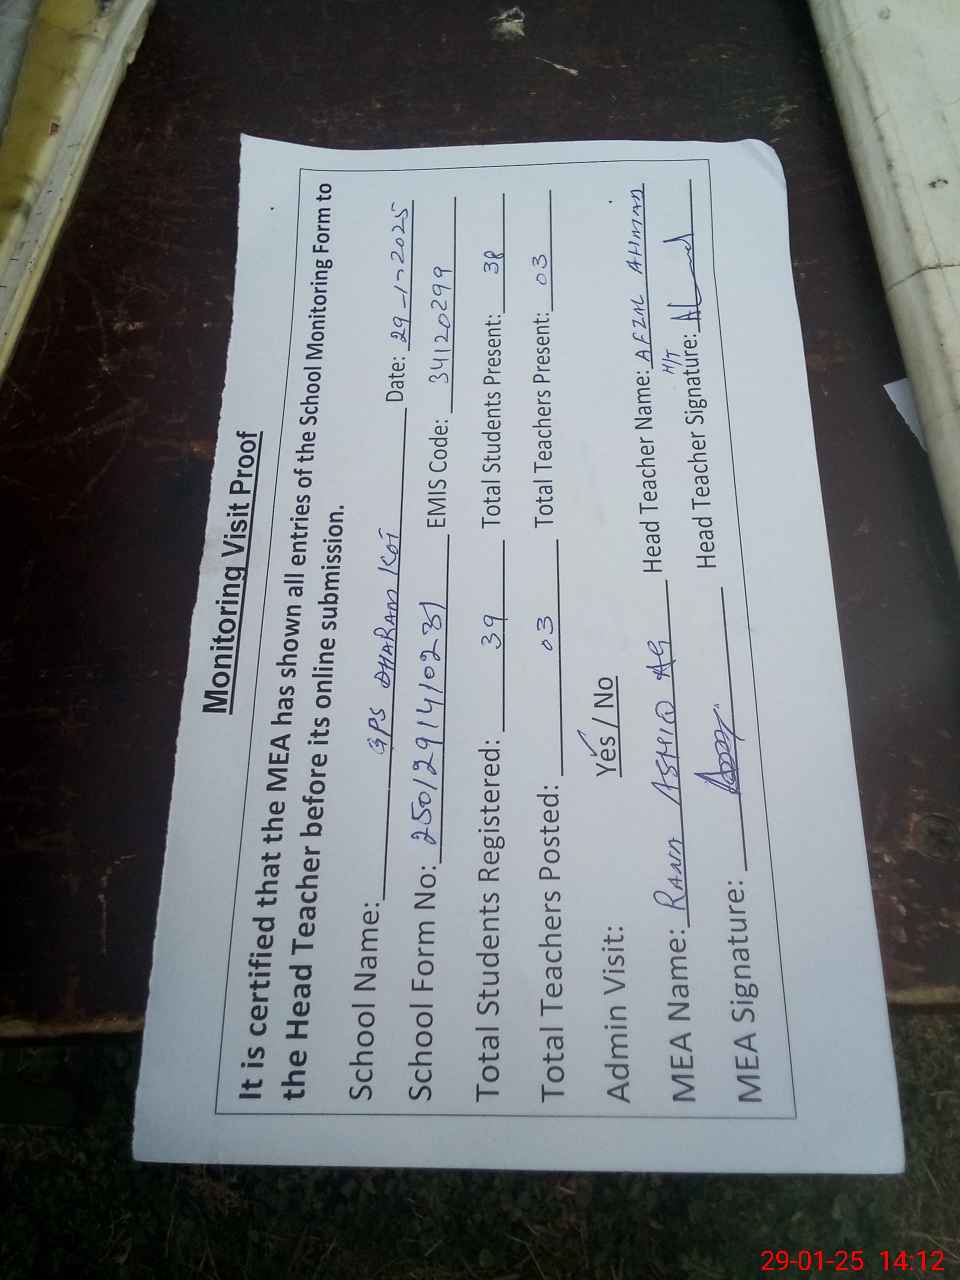 Monitoring Visit Proof
It is certified that the MEA has shown all entries of the School Monitoring Form to
the Head Teacher before its online submission.
School Name: GPS DHARAM KOT Date: 29-1-2025
School Form No: 25012914110231 EMIS Code: 34120299
Total Students Registered: 39 Total Students Present: 38
Total Teachers Posted: 03 Total Teachers Present: 03
Admin Visit: Yes / No
MEA Name: RANA Head Teacher Name: AFZAL AHMAD
H/T
MEA Signature: Head Teacher Signature:
29-01-25 14:12